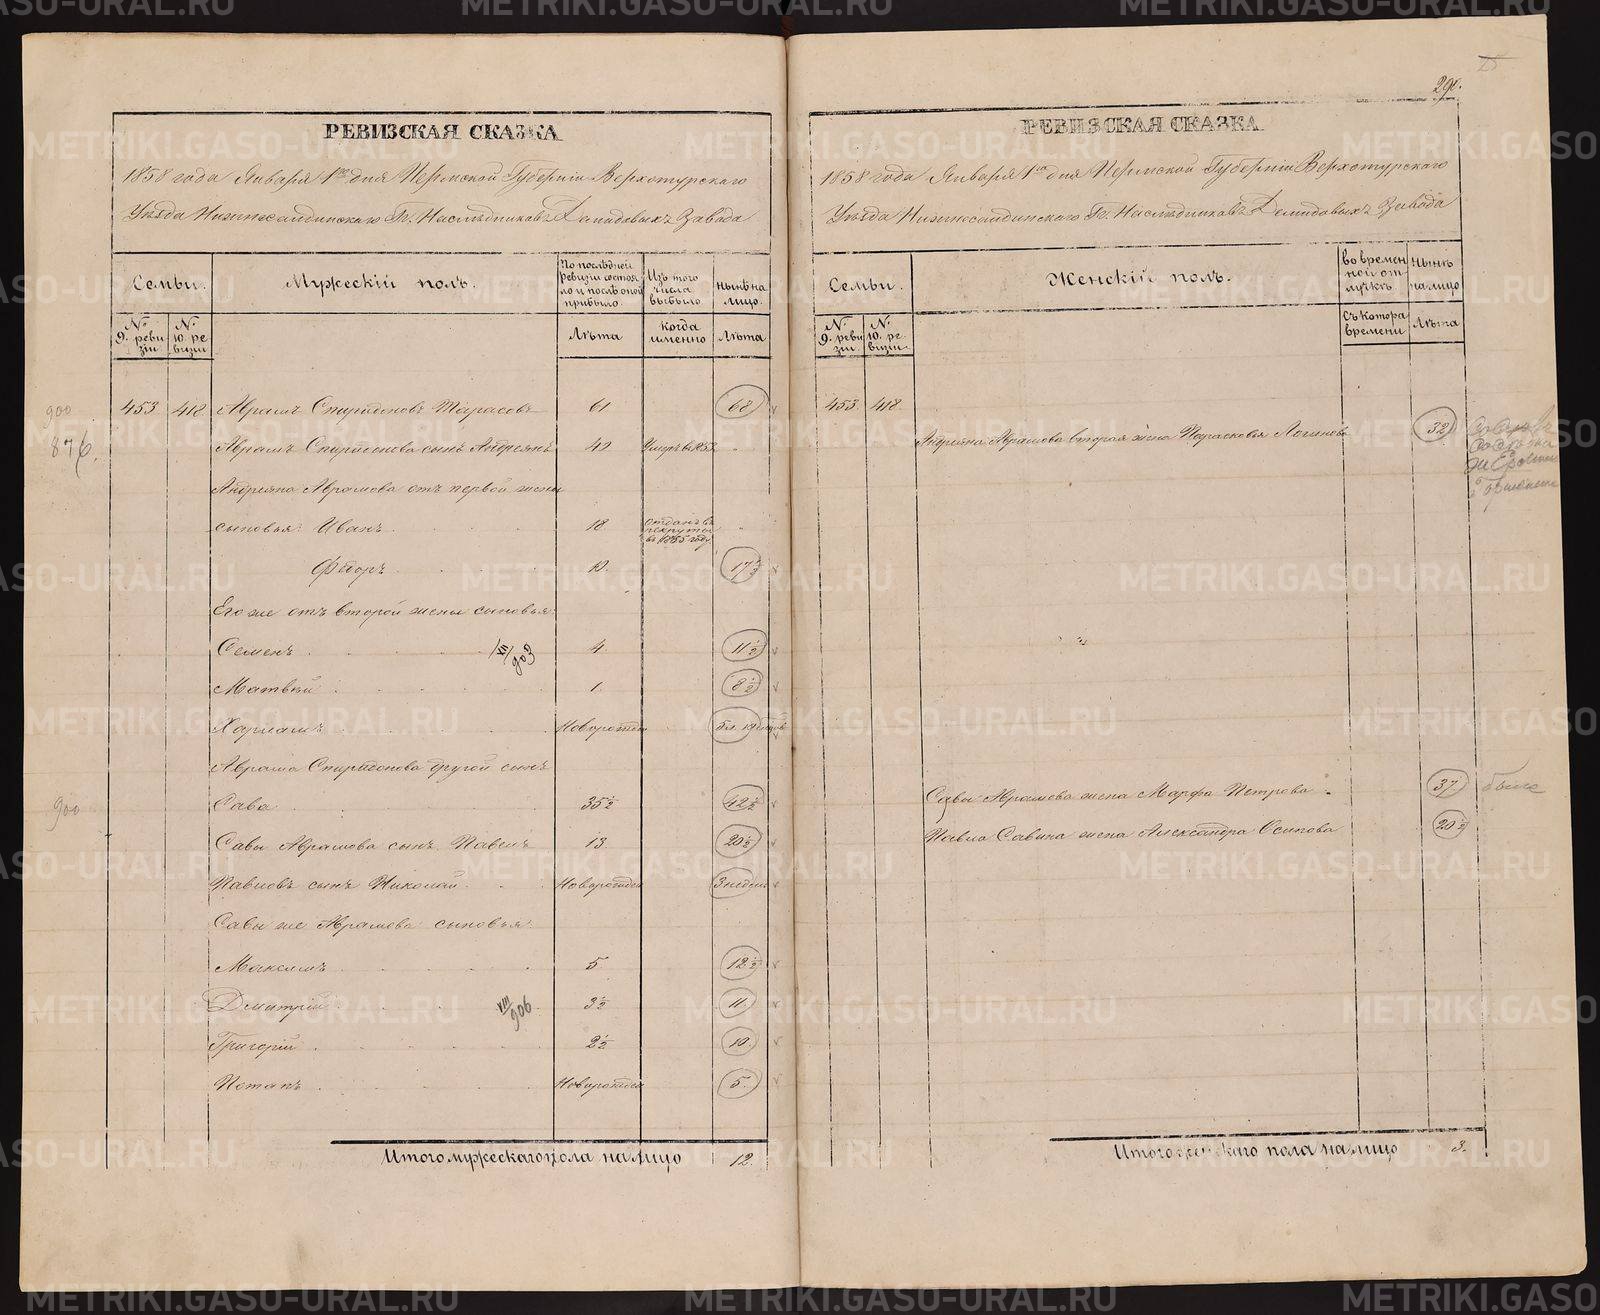 290.
РЕВИЗСКАЯ СКАЗКА
1858 года Января 1го дня Пермской Губерніи Верхотурскаго
Уѣзда Нижнесалдинскаго Гг. Наслѣдниковъ Демидовыхъ Завода
Семьи.
Мужескій полъ.
По послѣдней ревизіи состояло и послѣ оной прибыло.
Изъ того числа выбыло
Нынѣ на лицо.
№ 9. ревизіи
№ 10. ревизіи
Лѣта
когда именно
Лѣта
900
453 418 Аврамъ Спиридоновъ Тарасовъ 61 68
876.
Аврама Спиридонова сынъ Андреянъ 40 Умеръ в 1853
Андреяна Аврамова отъ первой жены
сыновья: Иванъ 18 отданъ въ рекруты въ 1855 году
Фёдоръ 10. 17½
Его же отъ второй жены сыновья:
Семенъ XII/903 4 11½
Матвѣй 1 8½
Харламъ Новорожден
Аврама Спиридонова другой сынъ
900
Сава 35½ 42½
Савы Аврамова сынъ Павелъ 13 20½
Павловъ сынъ Николай Новорожден 3 недели
Савы же Аврамова сыновья:
Максимъ 5 12½
Дмитрій VIII/906 3½ 11.
Григорій 2½ 10.
Потапъ Новорожден 5.
Итого мужескаго пола на лицо 12.
РЕВИЗСКАЯ СКАЗКА
1858 года Января 1го дня Пермской Губерніи Верхотурскаго
Уѣзда Нижнесалдинскаго Гг. Наслѣдниковъ Демидовыхъ Завода
Семьи.
Женскій полъ.
во временной отлучкѣ.
Нынѣ на лицо
№ 9. ревизіи
№ 10. ревизіи
Съ котора времени
Лѣта
453 418
Андреяна Аврамова вторая жена Парасковья Логинова 32
Савы Аврамова жена Марфа Петрова 37
Павла Савина жена Александра Осипова 20½
Итого женскаго пола на лицо 3.
METRIKI.GASO-URAL.RU